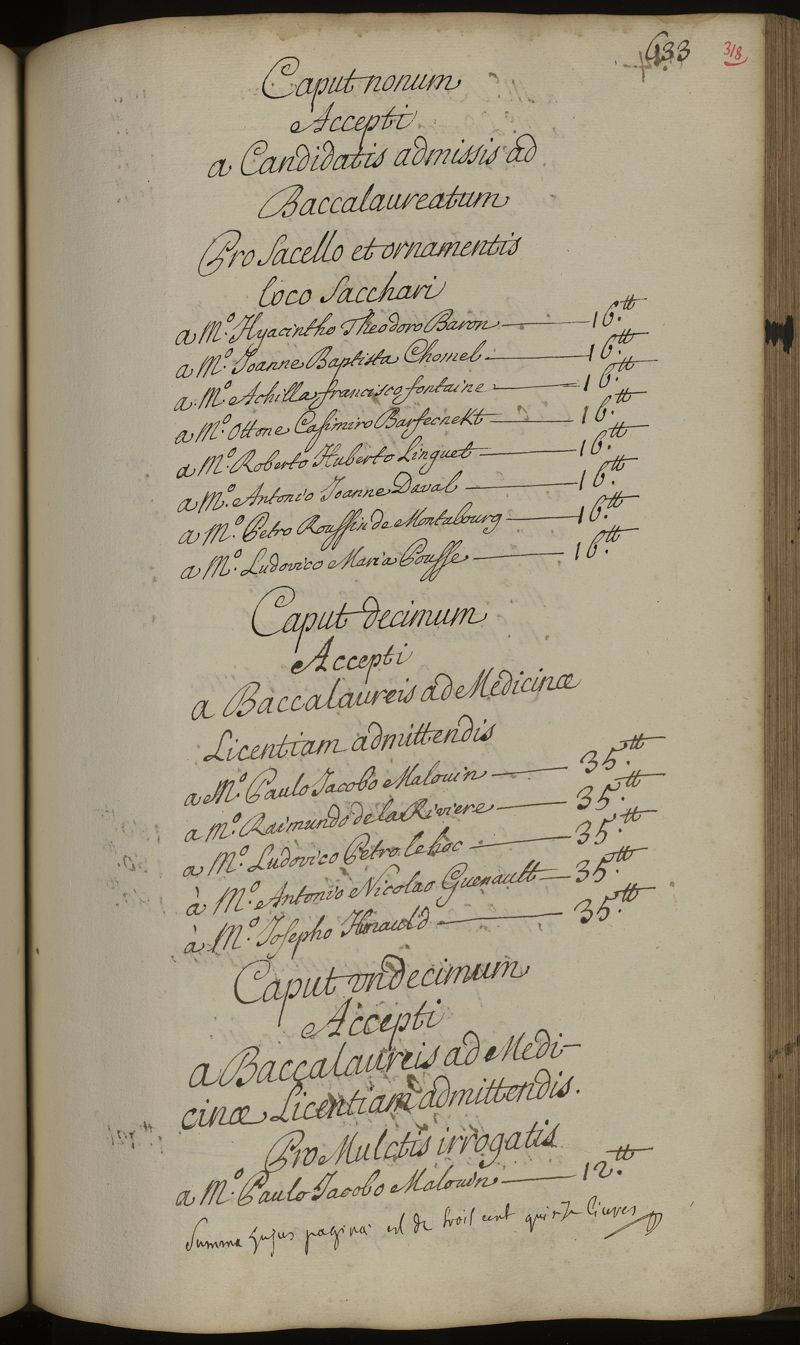 633 318
Caput nonum
Accepti
a Candidatis admissis ad
Baccalaureatum
Pro Sacello et ornamentis
loco Sacchari
a M.º Hyacintho Theodoro Baron — 16.tt
a M.º Joanne Baptista Chomel — 16.tt
a M.º Achilla francisco fontaine — 16.tt
a M.º Ottone Casimiro Barfecnekt — 16.tt
a M.º Roberto Huberto Linguet — 16.tt
a M.º Antonio Joanne Daval — 16.tt
a M.º Petro Roussin de Montabourg — 16.tt
a M.º Ludovico Maria Pousse — 16.tt
Caput decimum
Accepti
a Baccalaureis ad Medicinæ
Licentiam admittendis
a M.º Paulo Jacobo Malouin — 35.tt
a M.º Raimundo de la Riviere — 35.tt
a M.º Ludovico Petro le hoc — 35.tt
à M.º Antonio Nicolao Guenault — 35.tt
à M.º Josepho Hinauld — 35.tt
Caput undecimum
Accepti
a Baccalaureis ad Medi-
cinæ Licentiam admittendis.
Pro Mulctis irrogatis
a M.º Paulo Jacobo Malouin — 12.tt
Summa hujus pagina est de trois cent quinze livres